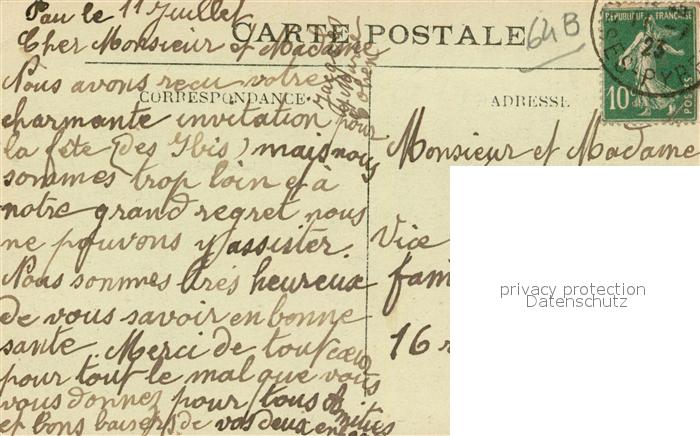 Pau le 11 Juillet
CARTE POSTALE
64B
Cher Monsieur et Madame
Nous avons reçu votre
CORRESPONDANCE
charmante invitation pour
la fête (des Ybis) mais nous
sommes trop loin et à
notre grand regret nous
ne pouvons y assister.
Nous sommes très heureux
de vous savoir en bonne
santé. Merci de tout cœur
pour tout le mal que vous
vous donnez pour tous Amitiés
et bons baisers de vos deux
ADRESSE
REPUBLIQUE FRANÇAISE
10
POSTES
23
Monsieur et Madame
Vice
fam
16 r
privacy protection
Datenschutz